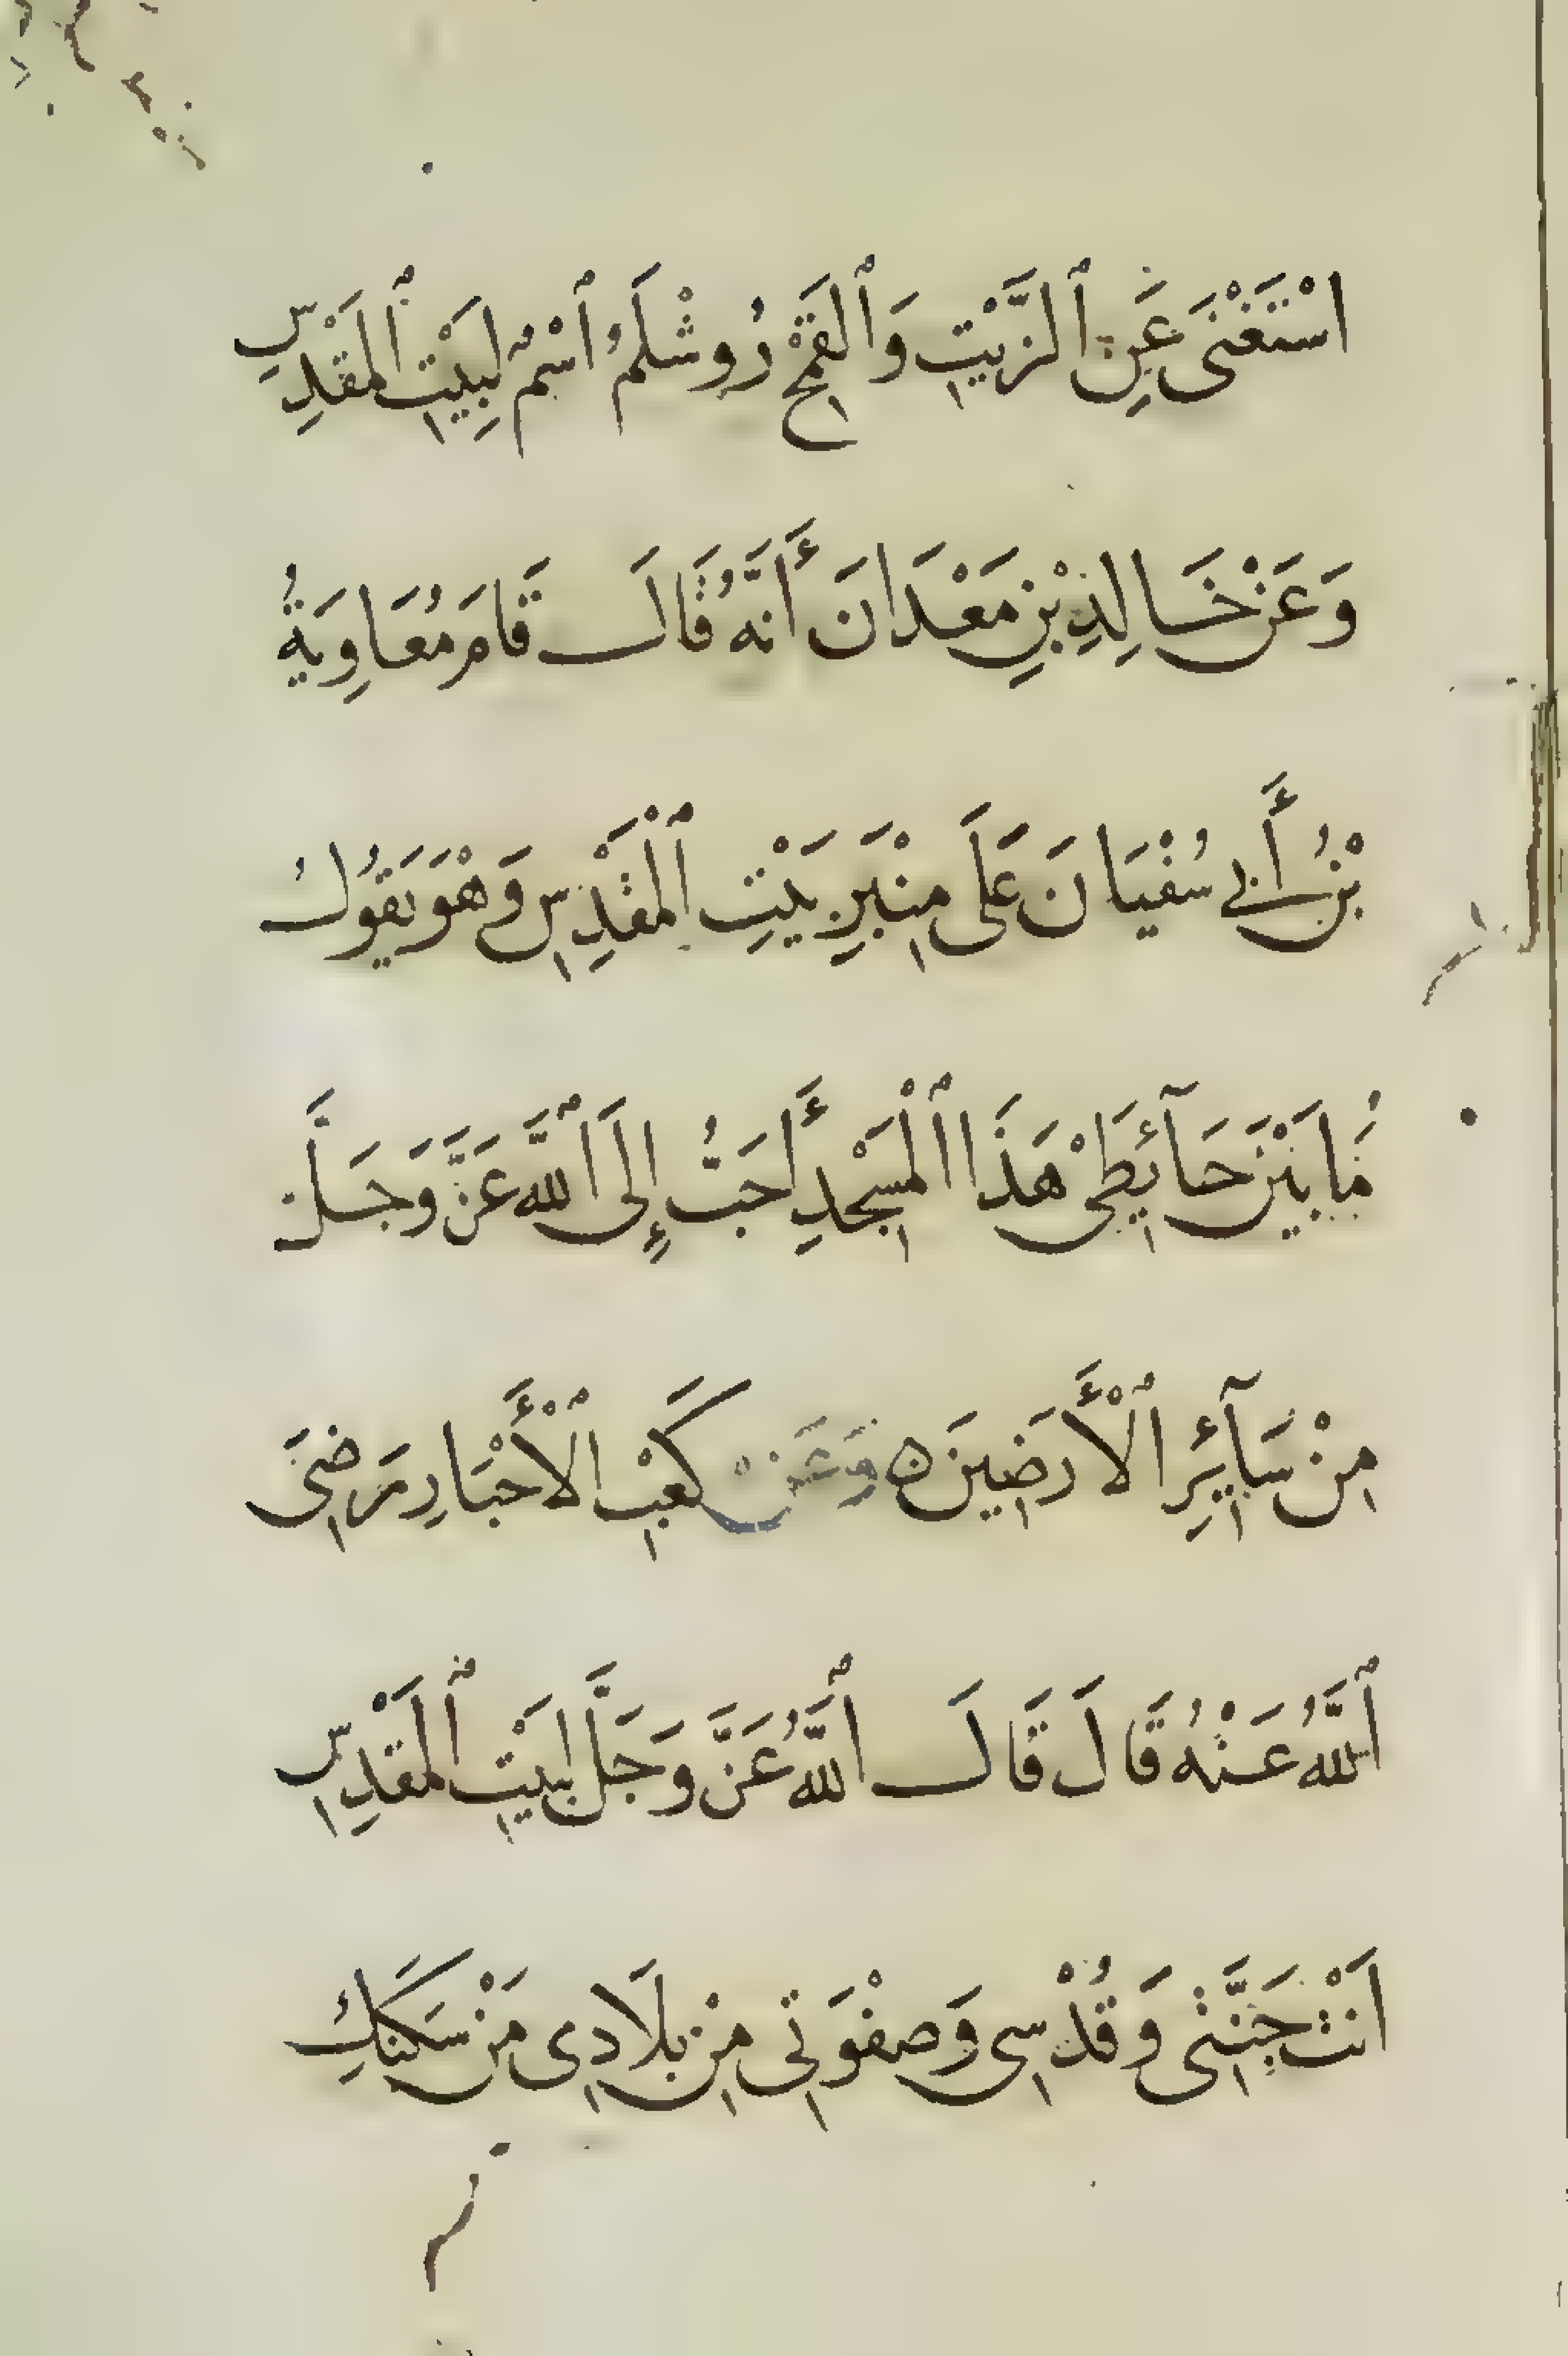 اسْتَغْنَى عَنِ ٱلزَّيْتِ وَٱلقَمْحِ رُوشَلَمُ ٱسْمُ لِبَيْتِ ٱلمَقْدِسِ
وَعَنْ خَالِدِ بْنِ مَعْدَانَ أَنَّهُ قَالَ قَامَ مُعَاوِيَةُ
بْنُ أَبِي سُفْيَانَ عَلَى مِنْبَرِ بَيْتِ ٱلْمَقْدِسِ وَهْوَ يَقُولُ
مَا بَيْنَ حَآئِطَىْ هَذَا ٱلْمَسْجِدِ أَحَبُّ إِلَى ٱللَّهِ عَزَّ وَجَلَّ
مِنْ سَآئِرِ ٱلْأَرَضِينَ ه وَعَنْ كَعْبِ ٱلْأَحْبَارِ رَضِىَ
ٱللَّهُ عَنْهُ قَالَ قَالَ ٱللَّهُ عَزَّ وَجَلَّ لِبَيْتِ ٱلمَقْدِسِ
اَنْتَ جَنَّتِى وَقُدْسِى وَصِفْوَتِى مِنْ بِلَادِى مَنْ سَكَنَكِ